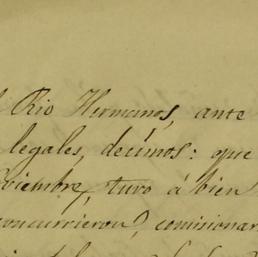 Rio Hermanos, ante
legales, decimos: que
viembre, tuvo á bien
concurrieron, comisionar